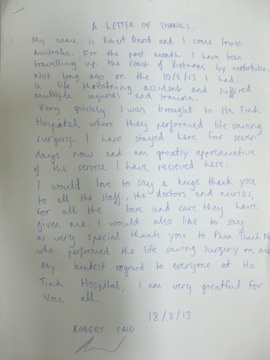 A LETTER OF THANKS.
My name is Robert Said and I come from
Australia. For the past month I have been
travelling up the coast of Vietnam by motorbike.
Not long ago on the 10/8/13 I had
a life threatning accident and suffered
multiple injuries and trauma.
Very quickly I was brought to Ha Tinh
Hospital, where they performed life saving
surgery. I have stayed here for seven
days now and am greatly appreciative
of the service I have recieved here.
I would love to say a huge thank you
to all the staff, the doctors and nurses,
for all the love and care they have
given me. I would also like to say
a very special thank you to Phan Thanh
who performed the life saving surgery on me
My kindest regard to everyone at Ha
Tinh Hospital, I am very greatful for
you all.
18/8/13
ROBERT SAID